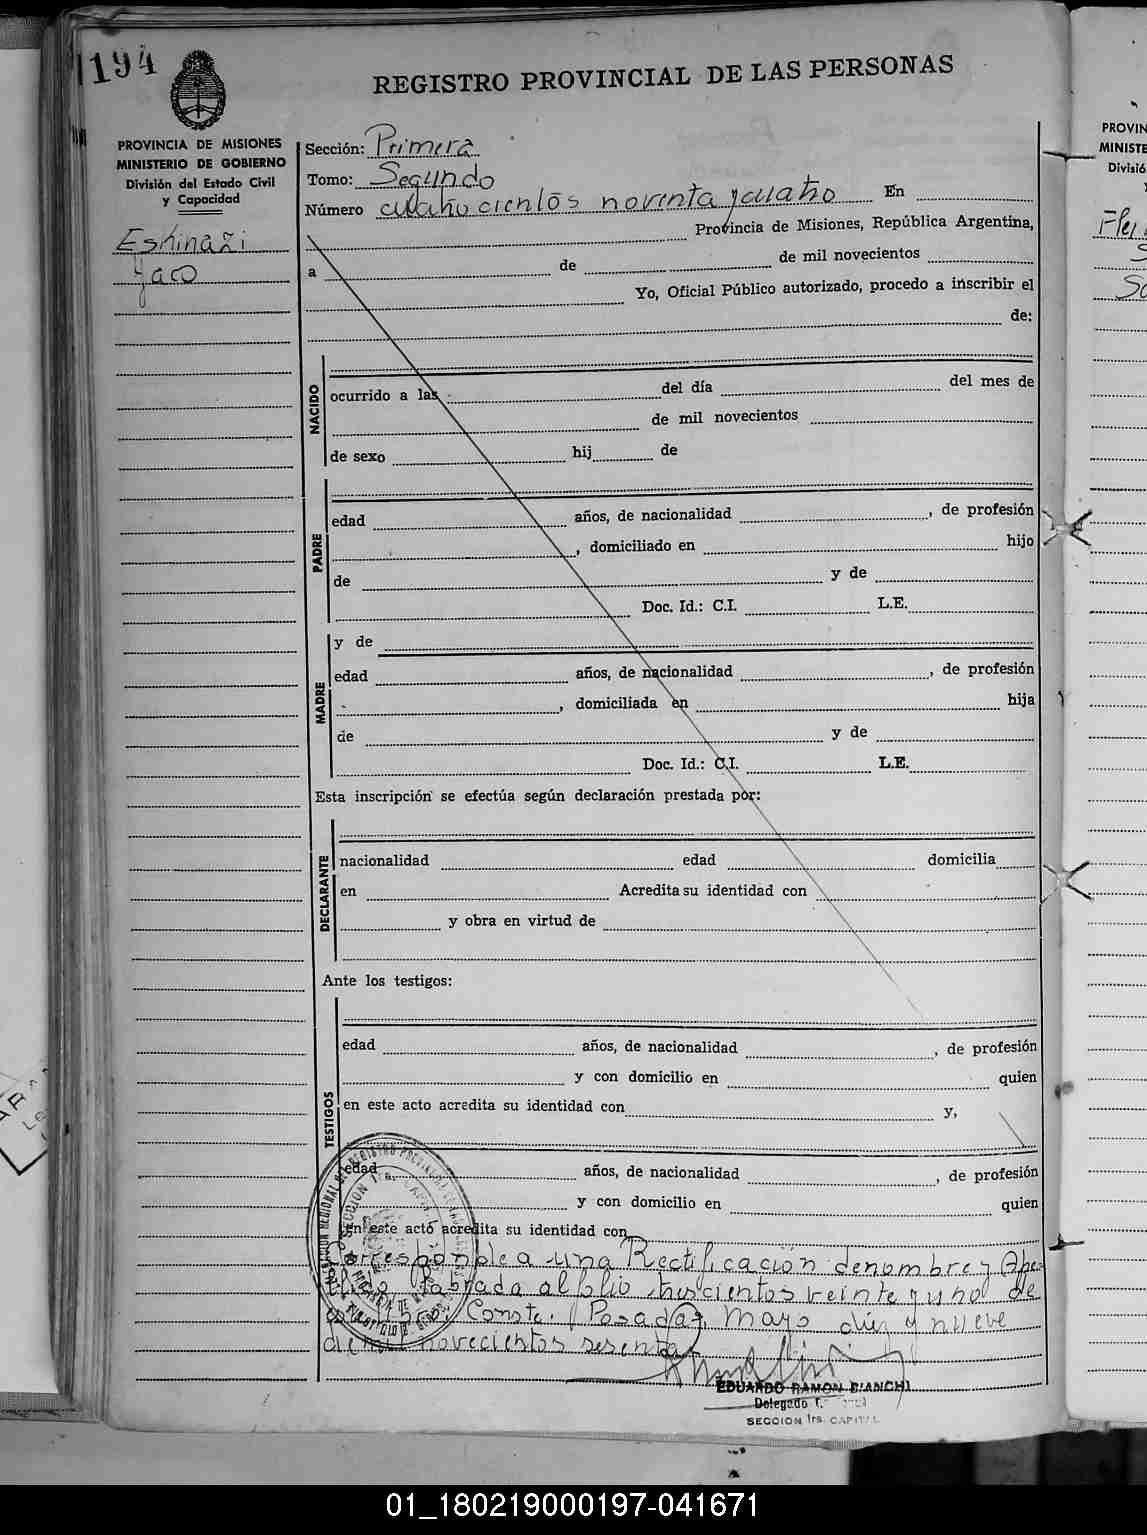 194
REGISTRO PROVINCIAL DE LAS PERSONAS
PROVINCIA DE MISIONES
MINISTERIO DE GOBIERNO
División del Estado Civil
y Capacidad
Eskinazi
Jaco
Sección: Primera
Tomo: Segundo
Número cuatrocientos noventa y cuatro En
Provincia de Misiones, República Argentina,
a de de mil novecientos
Yo, Oficial Público autorizado, procedo a inscribir el
de:
NACIDO
ocurrido a las del día del mes de
de mil novecientos
de sexo hij de
PADRE
edad años, de nacionalidad , de profesión
, domiciliado en hijo
de y de
Doc. Id.: C.I. L.E.
MADRE
y de
edad años, de nacionalidad , de profesión
, domiciliada en hija
de y de
Doc. Id.: C.I. L.E.
Esta inscripción se efectúa según declaración prestada por:
DECLARANTE
nacionalidad edad domicilia
en Acredita su identidad con
y obra en virtud de
Ante los testigos:
TESTIGOS
edad años, de nacionalidad , de profesión
y con domicilio en quien
en este acto acredita su identidad con y,
edad años, de nacionalidad , de profesión
y con domicilio en quien
en este acto acredita su identidad con
Corresponde a una Rectificación de nombre y Ape
labrada al folio trescientos veinte y uno de
Conste. Posadas, Mayo diez y nueve
de mil novecientos sesenta
EDUARDO RAMON BIANCHI
Delegado
SECCION 1ra. CAPITAL
PROVIN
MINISTE
Divisió
01_180219000197-041671